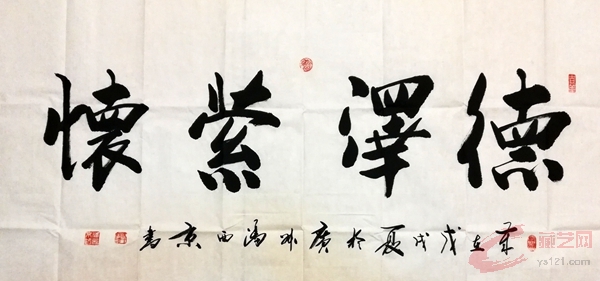 德澤縈懷
歲在戊戌夏於廣州馮西京書
藏艺网
ys121.com